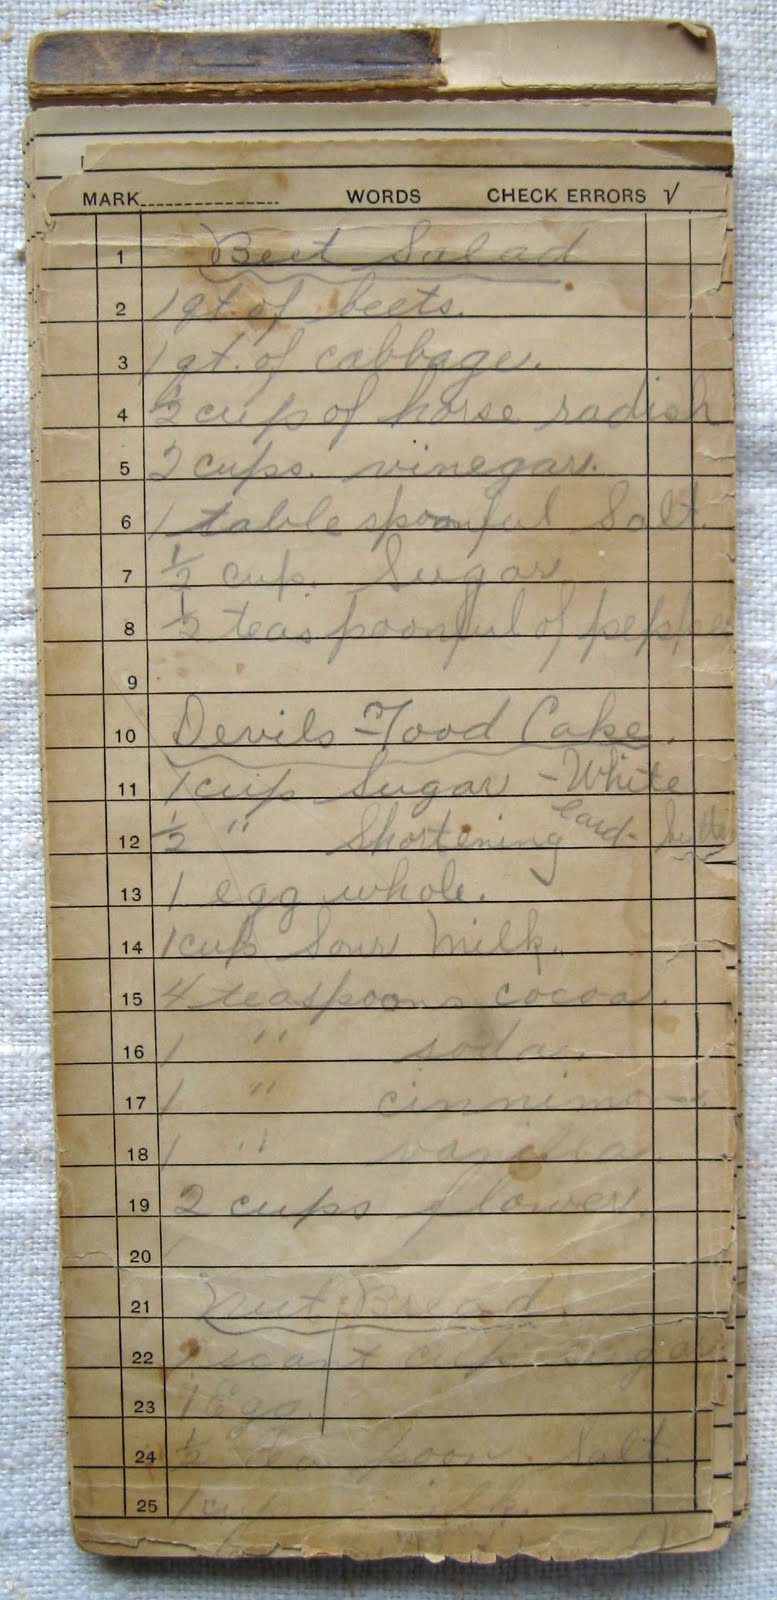 MARK WORDS CHECK ERRORS √
1 Beet Salad
2 1 qt. of beets.
3 1 qt. of cabbage.
4 ½ cup of horse radish
5 2 cups. vinegar.
6 1 tablespoonful Salt.
7 ½ cup. Sugar
8 ½ teaspoonful of peppe
9
10 Devils-Food Cake.
11 1 cup Sugar - White
12 ½ " Shortening lard-
13 1 egg whole.
14 1 cup Sour Milk.
15 4 teaspoons cocoa.
16 1 " soda.
17 1 " cinnimon
18 1 " vanilla.
19 2 cups flower.
20
21 Nut Bread.
22 1 scant cup sugar
23 1 Egg.
24 ½ teaspoon Salt.
25 1 cup milk.